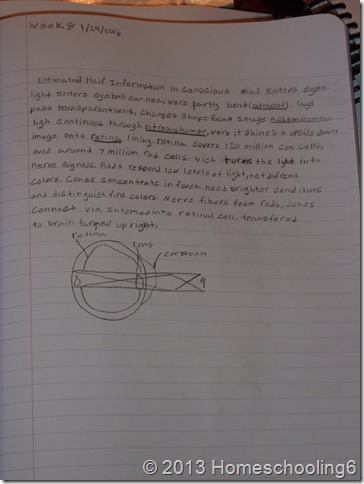 Week 8 1/24/2013
Estimated Half Information in Conscious Mind Enters Eyes.
light Enters eyeball cornea, were partly bent (refracted). rays
pass transparent lens, changes shape focus image
ligh Continues through vitreous humor, were it shines a upside down
image onto retina lining. retina covers 120 million con cells,
and around 7 million rod cells. wich turns the light into
nerve signals. Rods respond low levels of light, not difrent
colors. Cones concentrate in fovea need brighter conditions
and distinguish fine colors. Nerve fibers from rods, cones
connect via Intermediate retinal cell. transfered
to brain turned upright.
retina
lens
© 2013 Homeschooling6